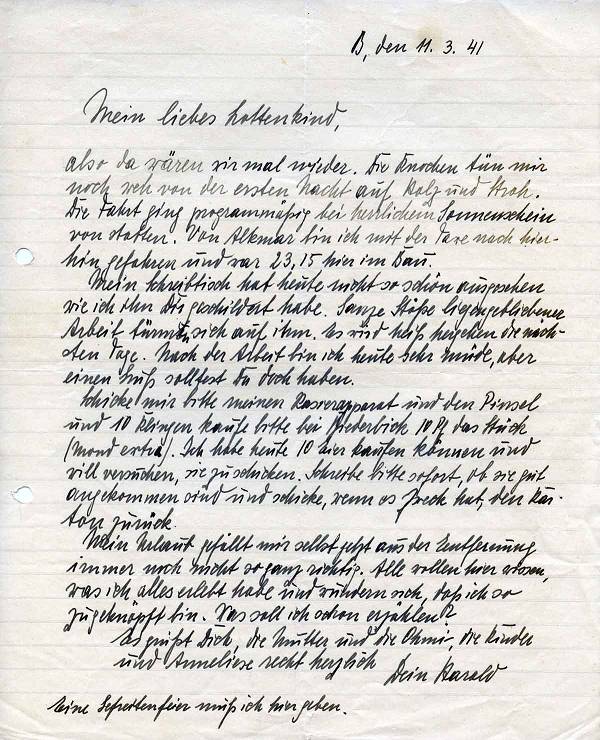 B, den 11. 3. 41
Mein liebes Lottenkind,
also da wären wir mal wieder. Die Knochen tun mir
noch weh von der ersten Nacht auf Holz und Stroh.
Die Fahrt ging programmäßig bei herrlichem Sonnenschein
von statten. Von Alkmar bin ich mit der Taxe nach hier-
hin gefahren und war 23,15 hier im Bau.
Mein Schreibtisch hat heute nicht so schön ausgesehen
wie ich ihn Dir geschildert habe. Ganze Stöße liegengebliebener
Arbeit türmten sich auf ihm. Es wird heiß hergehen die näch-
sten Tage. Nach der Arbeit bin ich heute sehr müde, aber
einen Gruß solltest Du doch haben.
Schicke mir bitte meinen Rasierapparat und den Pinsel
und 10 Klingen kaufe bitte bei 10 Pf das Stück
(Mond extra). Ich habe heute 10 hier kaufen können und
will versuchen, sie zu schicken. Schreibe bitte sofort, ob sie gut
angekommen sind und schicke, wenn es Zweck hat, den Kar-
ton zurück.
Mein Urlaub gefällt mir selbst jetzt aus der Entfernung
immer noch nicht so ganz richtig. Alle wollen hier wissen,
was ich alles erlebt habe und wundern sich, daß ich so
zugeknöpft bin. Was soll ich schon erzählen?
Es grüßt Dich, die Mutter und die Ohmi, die Kinder
und Anneliese recht herzlich
Dein Harald
Eine muß ich hier geben.